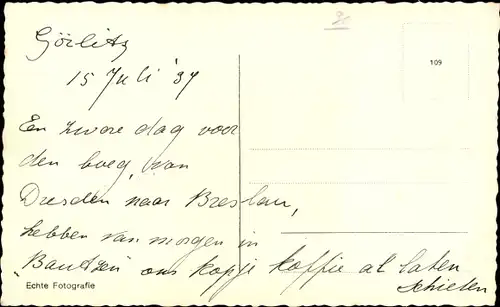 Görlitz
15 Juli '37
En zware dag voor
den boeg, van
Dresden naar Breslau,
hebben van morgen in
"Bautzen" ons kopje koffie al laten
schieten
Echte Fotografie
109